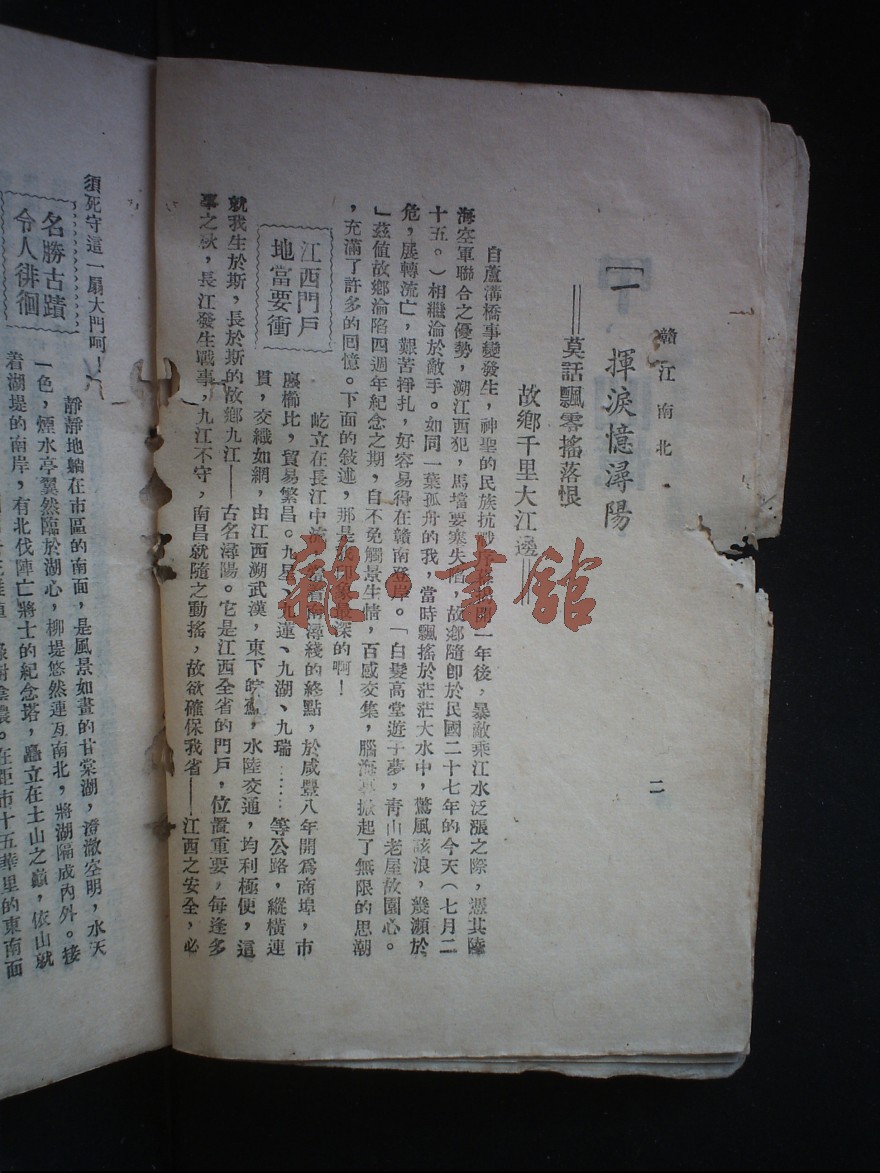 贛江南北
二
[一 揮淚憶潯陽
＝莫話飄零搖落恨
故鄉千里大江邊＝
自蘆溝橋事變發生，神聖的民族抗戰 一年後，暴敵乘江水泛漲之際，憑其陸
海空軍聯合之優勢，溯江西犯，馬壋要塞失陷，故鄉隨即於民國二十七年的今天（七月二
十五。）相繼淪於敵手。如同一葉孤舟的我，當時飄搖於茫茫大水中，驚風該浪，幾瀕於
危，展轉流亡，艱苦掙扎，好容易得在贛南登岸。「白髮高堂遊子夢，靑山老屋故園心。
」茲値故鄉淪陷四週年紀念之期，自不免觸景生情，百感交集，腦海 掀起了無限的思潮
，充滿了許多的囘憶。下面的敍述，那是我 深的啊！
江西門戶
地當要衝
屹立在長江中流 南潯綫的終點，於咸豐八年開爲商埠，市
廛櫛比，貿易繁昌。九星、九蓮、九湖、九瑞……等公路，縱橫連
貫，交織如網，由江西溯武漢，東下皖 ，水陸交通，均利極便，這
就我生於斯，長於斯的故鄉九江——古名潯陽。它是江西全省的門戶，位置重要，每逢多
事之秋，長江發生戰事，九江不守，南昌就隨之動搖，故欲確保我省——江西之安全，必
須死守這一扇大門呵！
名勝古蹟
令人徘徊
靜靜地躺在市區的南面，是風景如畫的甘棠湖，澄澈空明，水天
一色，煙水亭翼然臨於湖心，柳堤悠然連亙南北，將湖隔成內外。接
着湖堤的南岸，有北伐陣亡將士的紀念塔，矗立在土山之巔，依山就
綠樹陰濃。在距市十五華里的東南面
雜·書館